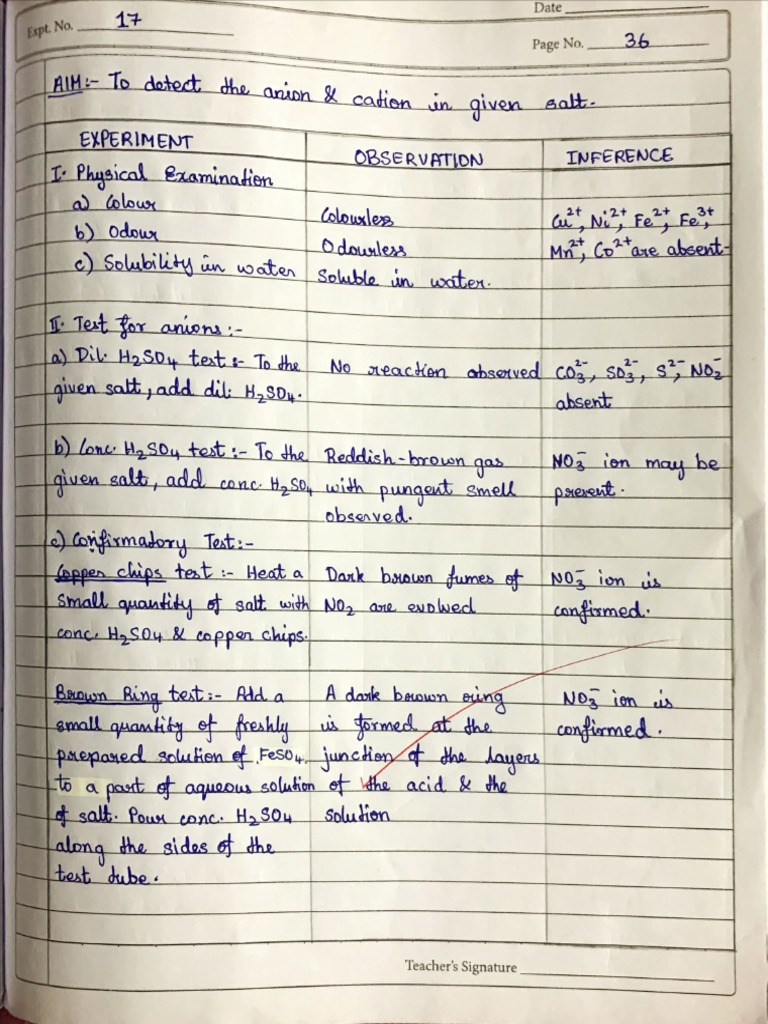 Date
Expt. No. 17
Page No. 36
AIM:- To detect the anion & cation in given salt.
EXPERIMENT OBSERVATION INFERENCE
I. Physical Examination
a) Colour Colourless Cu²⁺, Ni²⁺, Fe²⁺, Fe³⁺,
b) Odour Odourless Mn²⁺, Co²⁺ are absent-
c) Solubility in water Soluble in water.
II. Test for anions:-
a) Dil. H₂SO₄ test:- To the No reaction observed CO₃²⁻, SO₃²⁻, S²⁻, NO₂⁻
given salt, add dil. H₂SO₄. absent
b) Conc. H₂SO₄ test:- To the Reddish-brown gas NO₃⁻ ion may be
given salt, add conc. H₂SO₄ with pungent smell present.
observed.
c) Confirmatory Test:-
Copper chips test:- Heat a Dark brown fumes of NO₃⁻ ion is
small quantity of salt with NO₂ are evolved confirmed.
conc. H₂SO₄ & copper chips.
Brown Ring test:- Add a A dark brown ring NO₃⁻ ion is
small quantity of freshly is formed at the confirmed.
prepared solution of FeSO₄ junction of the layers
to a part of aqueous solution of the acid & the
of salt. Pour conc. H₂SO₄ solution
along the sides of the
test tube.
Teacher's Signature